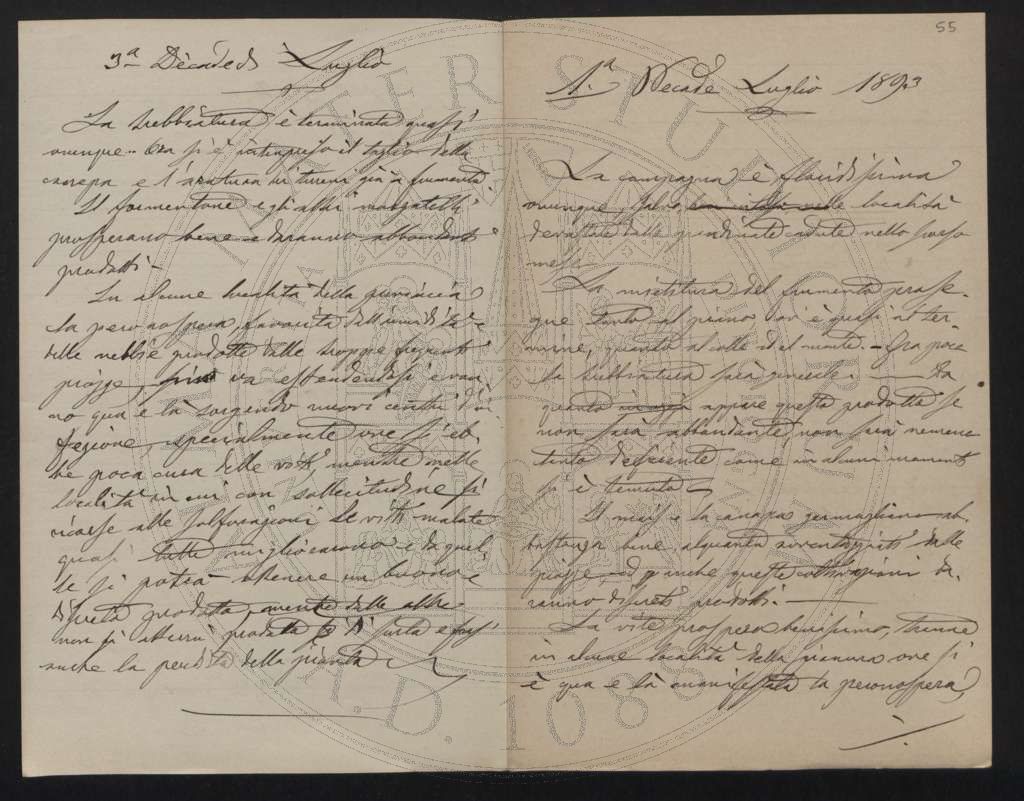 3ª Decade di Luglio
La trebbiatura è terminata quasi
ovunque. Ora si è intrapreso il taglio della
canepa e l'aratura dei terreni già a frumento.
Il formentone e gli altri marzatelli
prosperano bene e daranno abbondanti
prodotti –
In alcune località della provincia
la peronospera, favorita dall'umidità e
dalle nebbie prodotte dalle troppe frequenti
piogge, va estendendosi e vanno
no qua e là sorgendo nuovi centri d'in-
fezione specialmente ove si eb-
be poca cura delle viti, mentre nelle
località in cui con sollecitudine si
ricorse alle solforazioni le viti malate
quasi tutte migliorarono e da quel-
le si potrà ottenere un buono e
discreto prodotto, mentre dalle altre
non si otterrà prodotto di sorta e forse
anche la perdita della pianta
55
1ª. Decade Luglio 1893
La campagna è floridissima
ovunque, salvo località
devastate dalle grandinate cadute nello scorso
mese.
La mietitura del frumento prose-
gue tanto al piano ov'è quasi al ter-
mine, quanto al colle ed al monte. – Fra poco
la trebbiatura sarà generale. — Da
quanto appare questo prodotto se
non sarà abbondante, non sarà nemmeno
tanto deficiente come in alcuni momenti
si è temuto –
Il mais e la canapa germogliano ab-
bastanza bene, alquanto avvantaggiati dalle
piogge, ed anche queste coltivazioni da-
ranno discreti prodotti. —
La vite prospera benissimo, tranne
in alcune località della pianura ove si
è qua e là manifestata la peronospera,